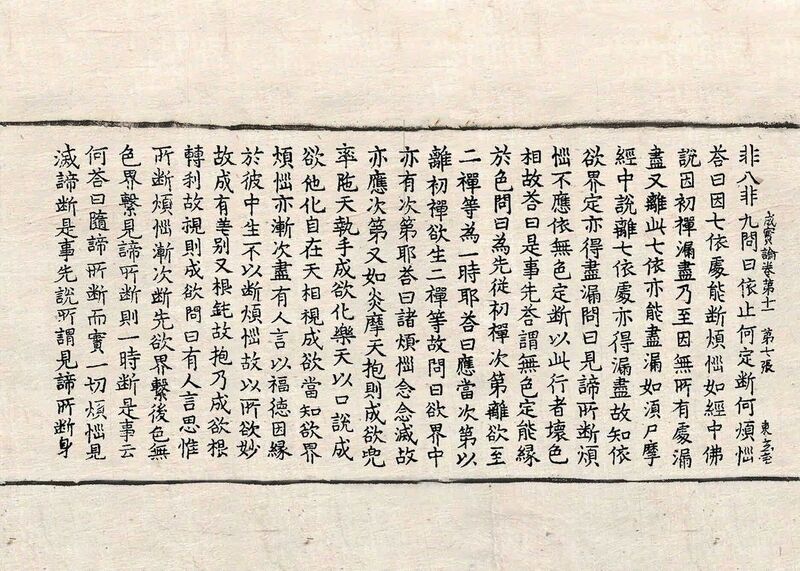 非八非九問曰依止何定断何煩惱
成實論卷第十一 第七張 東
荅曰因七依處能断煩惱如經中佛
說因初禪漏盡乃至因無所有處漏
盡又離此七依亦能盡漏如湏尸摩
經中說離七依處亦得漏盡故知依
欲界定亦得盡漏問曰見諦所断煩
惱不應依無色定断以此行者壞色
相故荅曰是事先荅謂無色定能緣
於色問曰為先從初禪次第離欲至
二禪等為一時耶荅曰應當次第以
離初禪欲生二禪等故問曰欲界中
亦有次第耶荅曰諸煩惱念念滅故
亦應次第又如炎摩天抱則成欲兜
率陁天執手成欲化樂天以口說成
欲他化自在天相視成欲當知欲界
煩惱亦漸次盡有人言以福德因緣
於彼中生不以断煩惱故以所欲妙
故成有差别又根鈍故抱乃成欲根
轉利故視則成欲問曰有人言思惟
所断煩惱漸次断先欲界繫後色無
色界繫見諦所断則一時断是事云
何荅曰隨諦所断而實一切煩惱見
滅諦断是事先說所謂見諦所断身